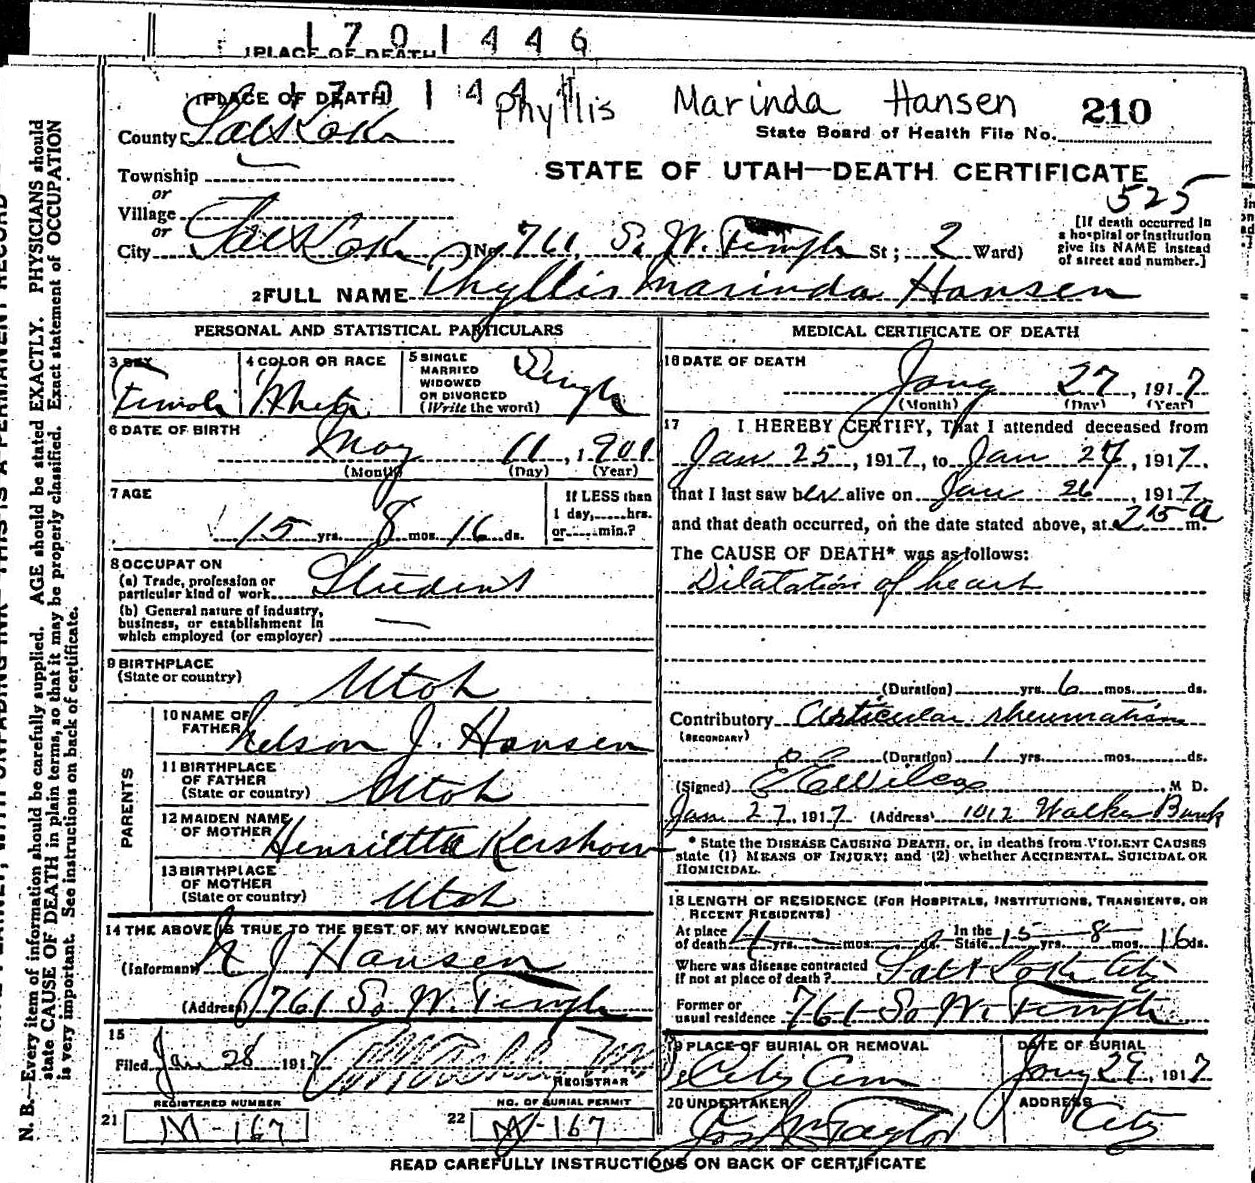 1701446
1 PLACE OF DEATH
1 PLACE OF DEATH 1 7 0 1 4 4
Phyllis Marinda Hansen 210
County Salt Lake State Board of Health File No.
Township —
STATE OF UTAH—DEATH CERTIFICATE
or
525
Village
or
City Salt Lake (No 761 So W. Temple St; 2 Ward)
[If death occurred in
a hospital or institution
give its NAME instead
of street and number.]
2 FULL NAME Phyllis Marinda Hansen
PERSONAL AND STATISTICAL PARTICULARS
3 SEX Female
4 COLOR OR RACE White
5 SINGLE
MARRIED
WIDOWED
OR DIVORCED
(Write the word)
Single
6 DATE OF BIRTH
May 11, 1901
(Month) (Day) (Year)
7 AGE
15 yrs. 8 mos. 16 ds.
If LESS than
1 day,.....hrs.
or.....min.?
8 OCCUPATION
(a) Trade, profession or
particular kind of work Student
(b) General nature of industry,
business, or establishment in
which employed (or employer) —
9 BIRTHPLACE
(State or country) Utah
PARENTS
10 NAME OF
FATHER Nelson J. Hansen
11 BIRTHPLACE
OF FATHER
(State or country) Utah
12 MAIDEN NAME
OF MOTHER Henrietta Kershaw
13 BIRTHPLACE
OF MOTHER
(State or country) Utah
14 THE ABOVE IS TRUE TO THE BEST OF MY KNOWLEDGE
(Informant) N J Hansen
(Address) 761 So W. Temple
15
Filed Jan 28 1917
REGISTRAR
REGISTERED NUMBER
21 M-167
NO. OF BURIAL PERMIT
22 M-167
MEDICAL CERTIFICATE OF DEATH
16 DATE OF DEATH
Jany 27, 1917
(Month) (Day) (Year)
17 I HEREBY CERTIFY, That I attended deceased from
Jan 25, 1917, to Jan 27, 1917.
that I last saw her alive on Jan 26, 1917
and that death occurred, on the date stated above, at 2 15 a m.
The CAUSE OF DEATH* was as follows:
Dilatation of heart
(Duration) yrs. 6 mos. ds.
Contributory Articular rheumatism
(SECONDARY)
(Duration) 1 yrs. mos. ds.
(Signed) M D.
Jan 27, 1917 (Address) 1012 Walker Bank
* State the DISEASE CAUSING DEATH, or, in deaths from VIOLENT CAUSES
state (1) MEANS OF INJURY; and (2) whether ACCIDENTAL, SUICIDAL OR
HOMICIDAL.
18 LENGTH OF RESIDENCE (FOR HOSPITALS, INSTITUTIONS, TRANSIENTS, OR
RECENT RESIDENTS)
At place
of death 4 yrs. — mos. — ds.
In the
State 15 yrs. 8 mos. 16 ds.
Where was disease contracted
if not at place of death? Salt Lake City
Former or
usual residence 761 So W. Temple
19 PLACE OF BURIAL OR REMOVAL
City Cem
DATE OF BURIAL
Jany 29, 1917
20 UNDERTAKER
Taylor
ADDRESS
City
READ CAREFULLY INSTRUCTIONS ON BACK OF CERTIFICATE
N. B.—Every item of information should be carefully supplied. AGE should be stated EXACTLY. PHYSICIANS should
state CAUSE OF DEATH in plain terms, so that it may be properly classified. Exact statement of OCCUPATION
is very important. See instructions on back of certificate.